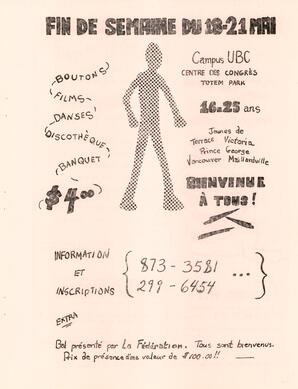 FIN DE SEMAINE DU 18-21 MAI
Campus UBC
CENTRE DES CONGRÈS
TOTEM PARK
BOUTONS
FILMS
DANSES
DISCOTHÈQUE
BANQUET
$4.00
16-25 ans
Jeunes de
Terrace Victoria
Prince George
Vancouver Maillardville
BIENVENUE
À TOUS!
INFORMATION
ET
INSCRIPTIONS
873-3581
299-6454
...
EXTRA
Bal présenté par La Fédération. Tous sont bienvenus.
Prix de présence d'une valeur de $100.00!!